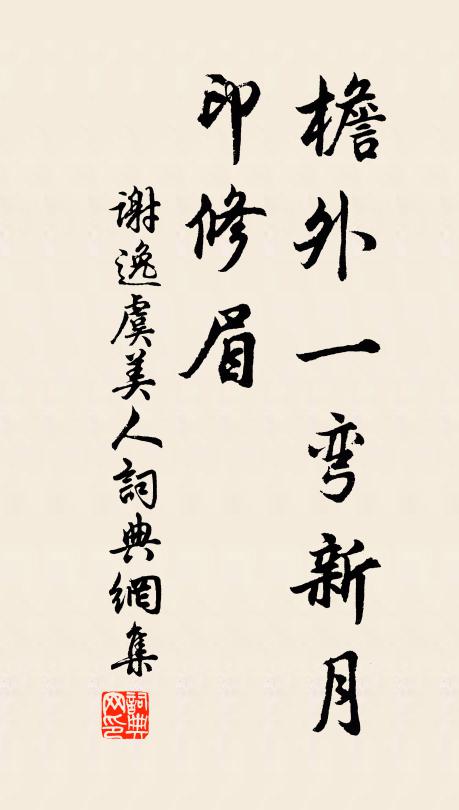 檐外一弯新月
印修眉
谢逸虞美人詞典網集
詞典
网印